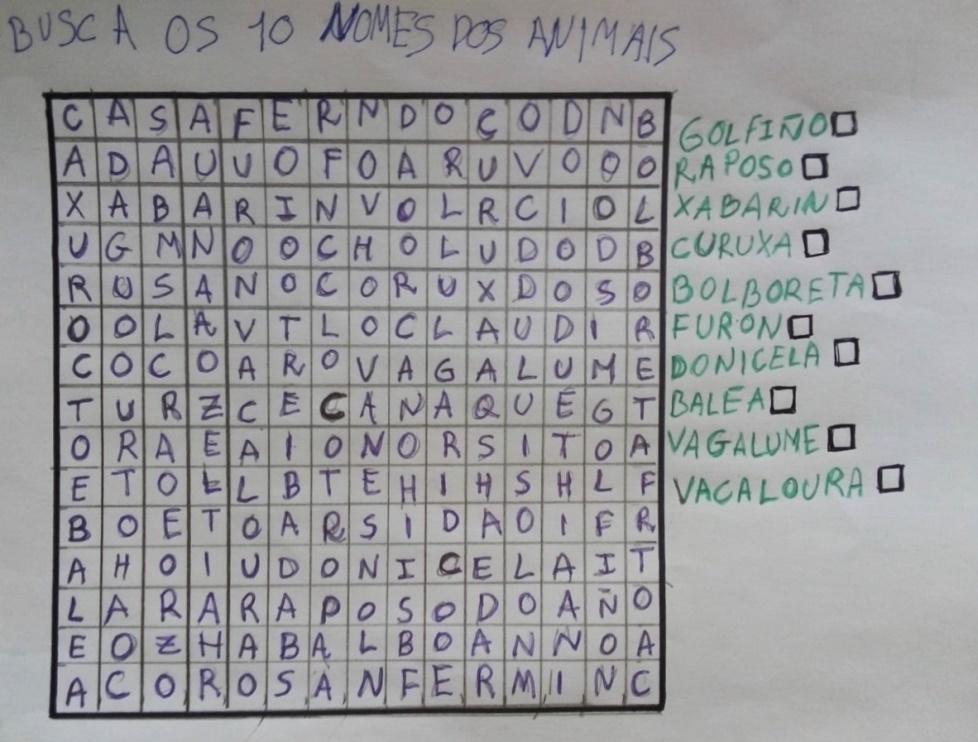 BUSCA OS 10 NOMES DOS ANIMAIS
C A S A F E R N D O C O D N B
A D A U U O F O A R U V O O O
X A B A R I N V O L R C I O L
U G M N O O C H O L U D O D B
R U S A N O C O R U X D O S O
O O L A V T L O C L A U D I R
C O C O A R O V A G A L U M E
T U R Z C E C A N A Q U E G T
O R A E A I O N O R S I T O A
E T O L L B T E H I H S H L F
B O E T O A R S I D A O I F R
A H O I U D O N I C E L A I T
L A R A R A P O S O D O A Ñ O
E O Z H A B A L B O A N N O A
A C O R O S A N F E R M I N C
GOLFIÑO
RAPOSO
XABARIN
CURUXA
BOLBORETA
FURÓN
DONICELA
BALEA
VAGALUME
VACALOURA